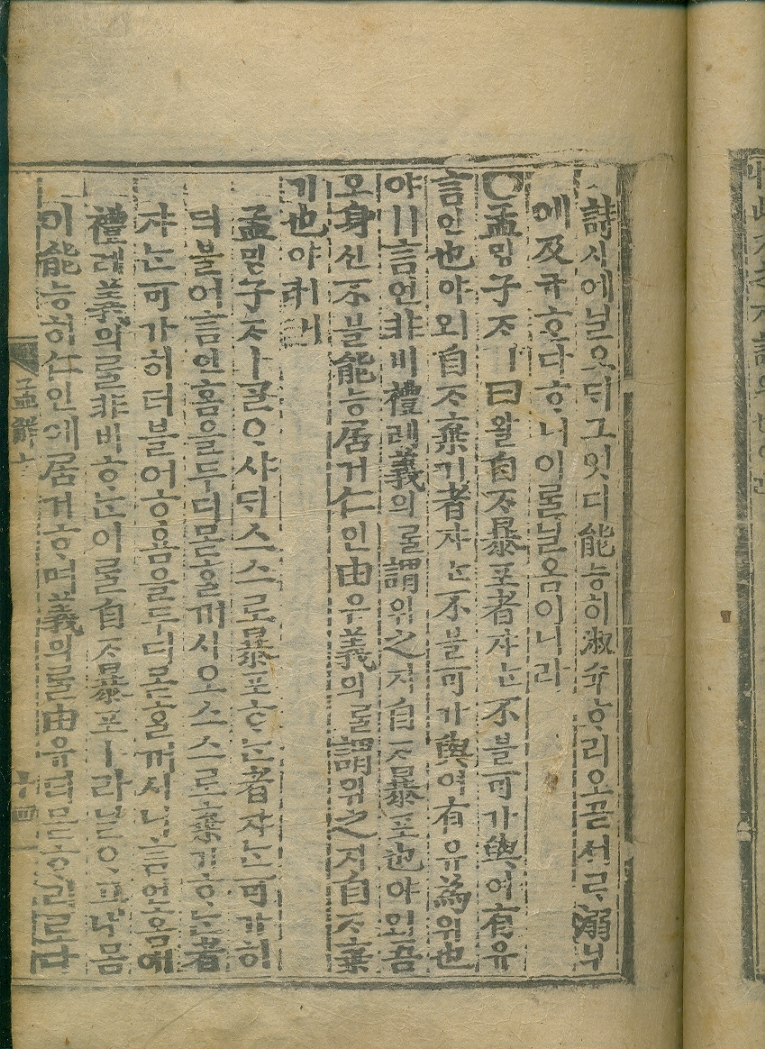 詩시예닐오ᄃᆡ그엇디能능히淑슉ᄒᆞ리오곧서ᄅᆞ溺닉
애及급ᄒᆞ다ᄒᆞ니이ᄅᆞᆯ닐옴이니라
○孟ᄆᆡᆼ子ᄌᆞㅣ曰왈自ᄌᆞ暴포者쟈ᄂᆞᆫ不블可가與여有유
言언也야ㅣ오自ᄌᆞ棄기者쟈ᄂᆞᆫ不블可가與여有유爲위也
야ㅣ니言언非비禮례義의ᄅᆞᆯ謂위之지自ᄌᆞ暴포也야ㅣ오吾
오身신不블能능居거仁인由유義의ᄅᆞᆯ謂위之지自ᄌᆞ棄
기也야ㅣ니라
孟ᄆᆡᆼ子ᄌᆞㅣᄀᆞᆯᄋᆞ샤ᄃᆡ스스로暴포ᄒᆞᄂᆞᆫ者쟈ᄂᆞᆫ可가히
더블어言언홈을두디몯ᄒᆞᆯ꺼시오스스로棄기ᄒᆞᄂᆞᆫ者
쟈ᄂᆞᆫ可가히더블어ᄒᆞ욤을두디몯ᄒᆞᆯ꺼시니言언홈애
禮례義의ᄅᆞᆯ非비ᄒᆞᄂᆞᆫ이ᄅᆞᆯ自ᄌᆞ暴포ㅣ라닐ᄋᆞ고내몸
이能능히仁인애居거ᄒᆞ며義의ᄅᆞᆯ由유티몯ᄒᆞ리로다
孟解七
十四